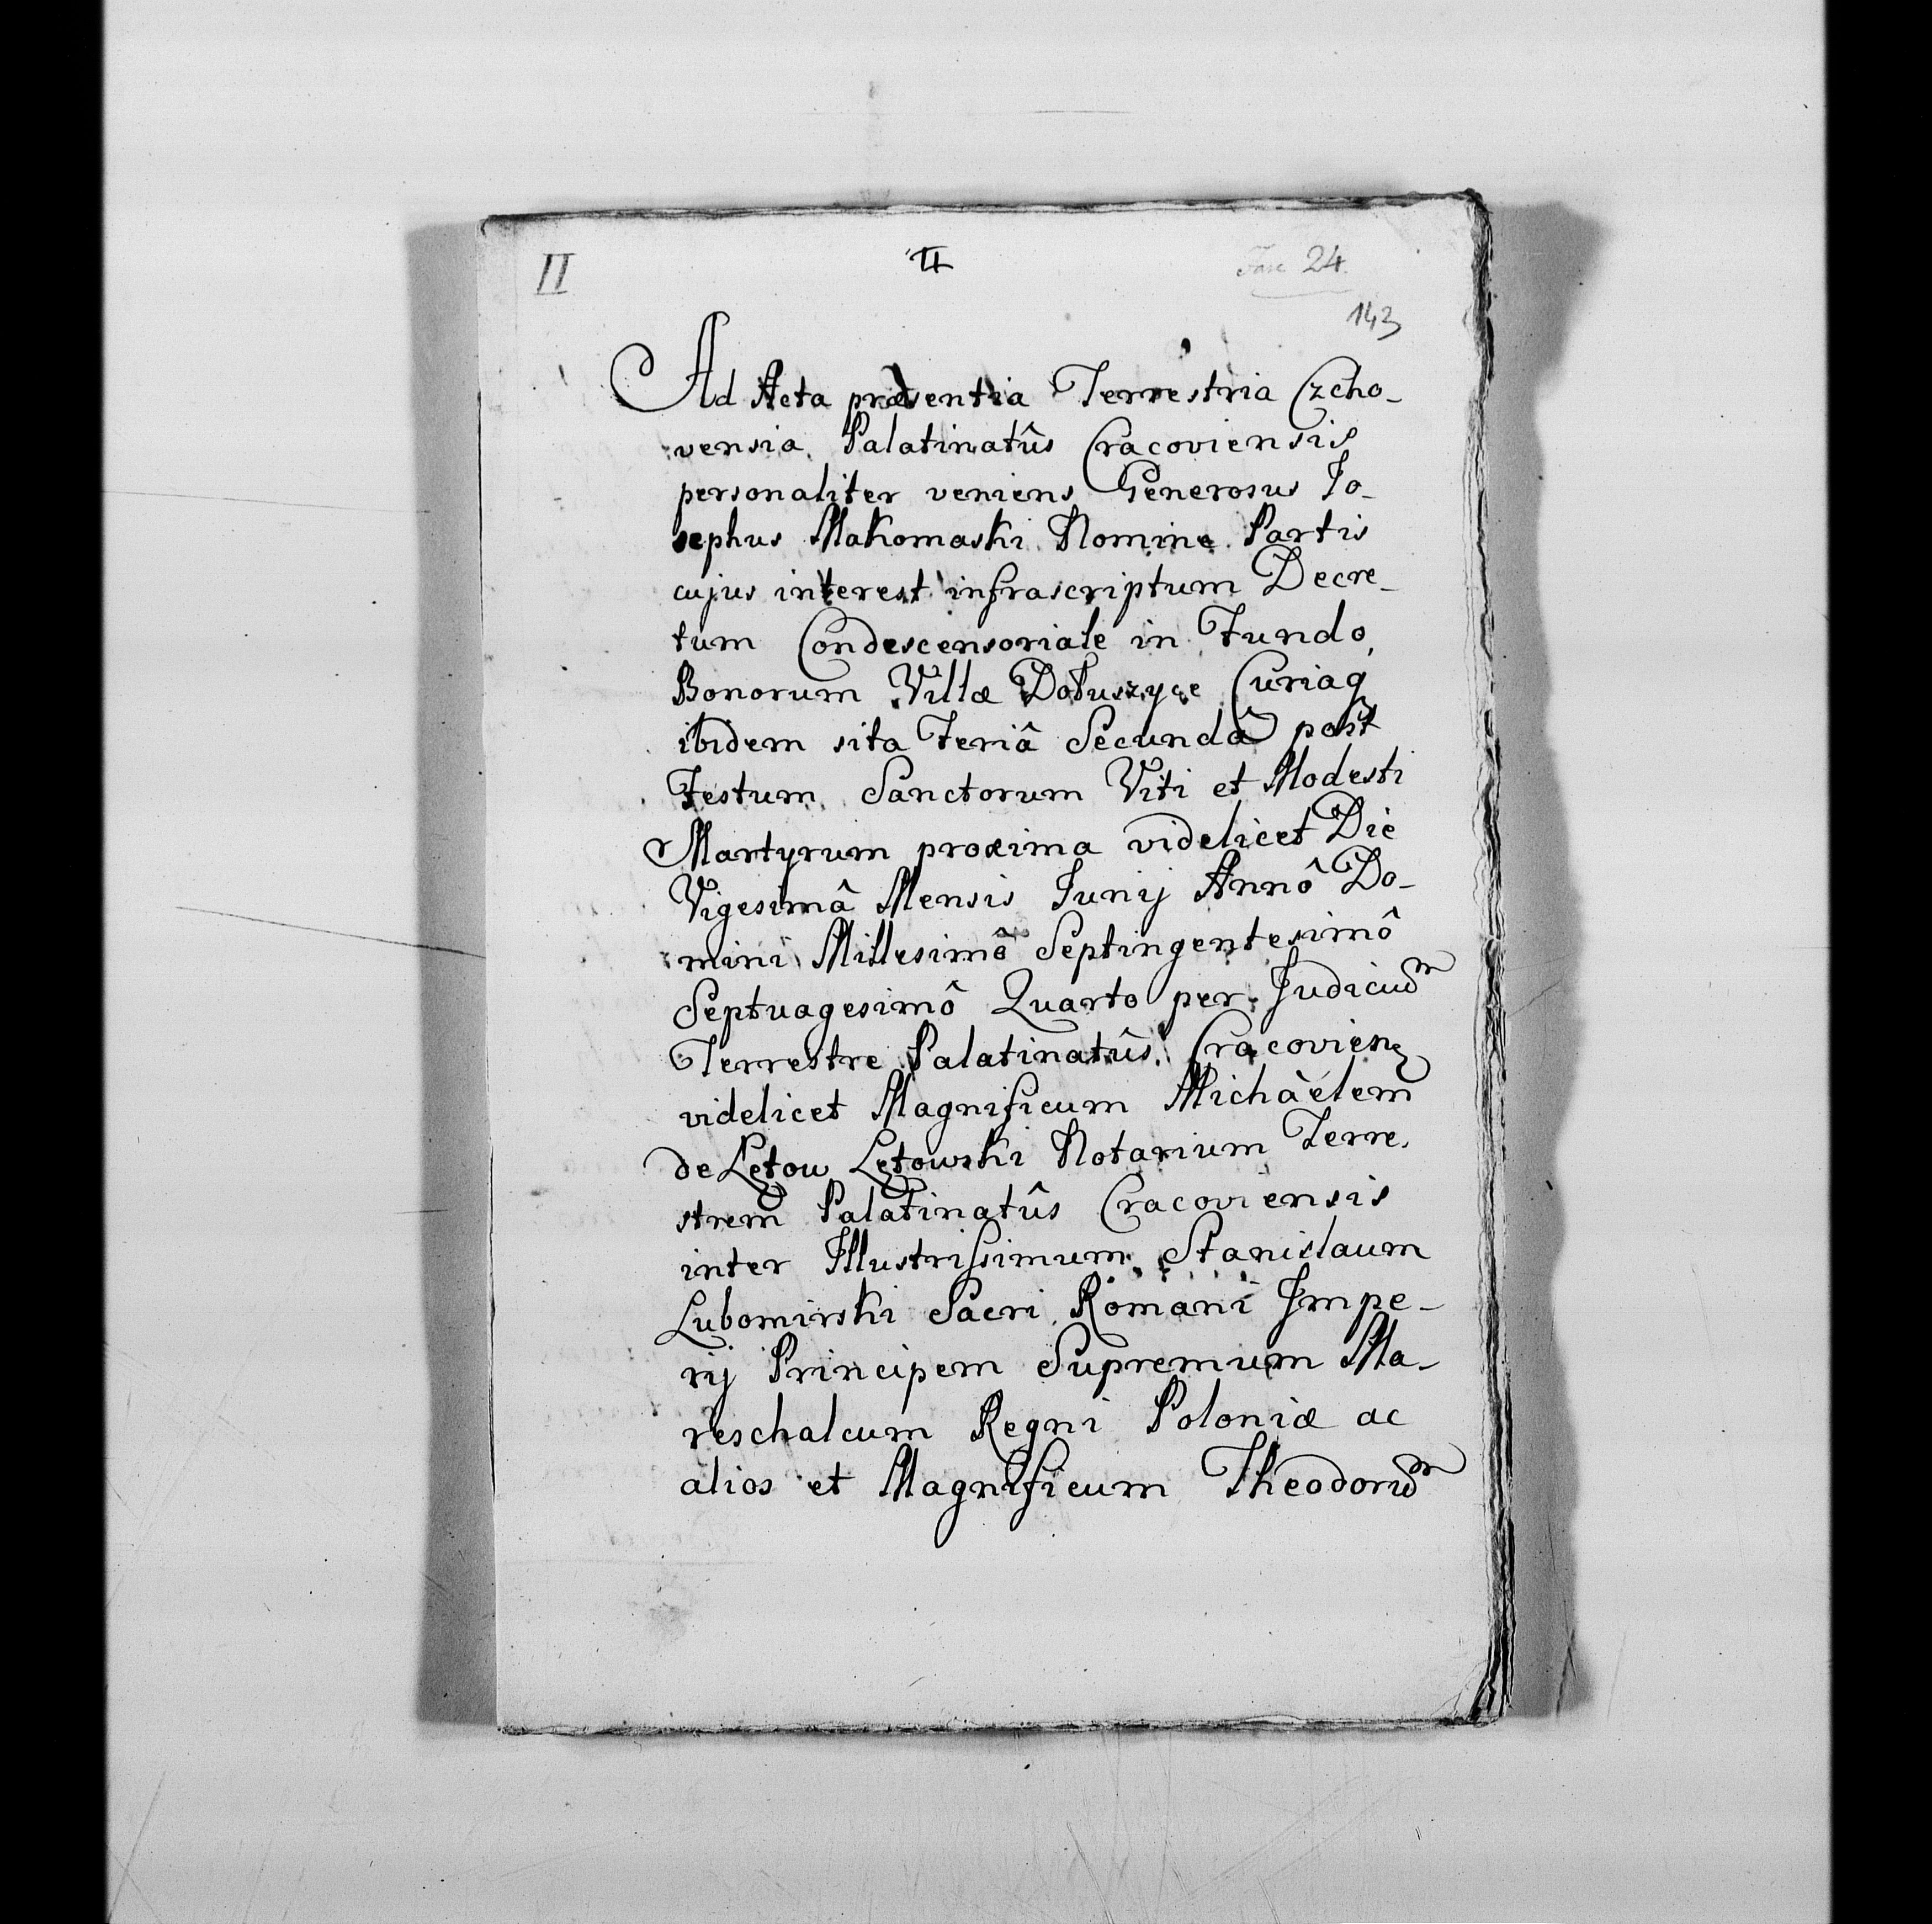 II
II
Fasc 24.
143
Ad Acta præsentia Terrestria Czcho-
vensia Palatinatûs Cracoviensis
personaliter veniens Generosus Jo-
sephus Makomaski Nomine Partis
cujus interest infrascriptum Decre-
tum Condescensoriale in Fundo
Bonorum Villæ Dołuszyce Curiaq
ibidem sita Feriâ Secundâ post
Festum Sanctorum Viti et Modesti
Martyrum proxima videlicet Die
Vigesimâ Mensis Junij Annô Do-
mini Millesimô Septingentesimô
Septuagesimô Quarto per Judicium
Terrestre Palatinatûs Cracovien
videlicet Magnificum Michàélem
de Łętow Łętowski Notarium Terre.
strem Palatinatûs Cracoviensis
inter Illustrissimum Stanislaum
Lubomirski Sacri Romani Impe-
rij Principem Supremum Ma-
reschalcum Regni Poloniæ ac
alios et Magnificum Theodorum